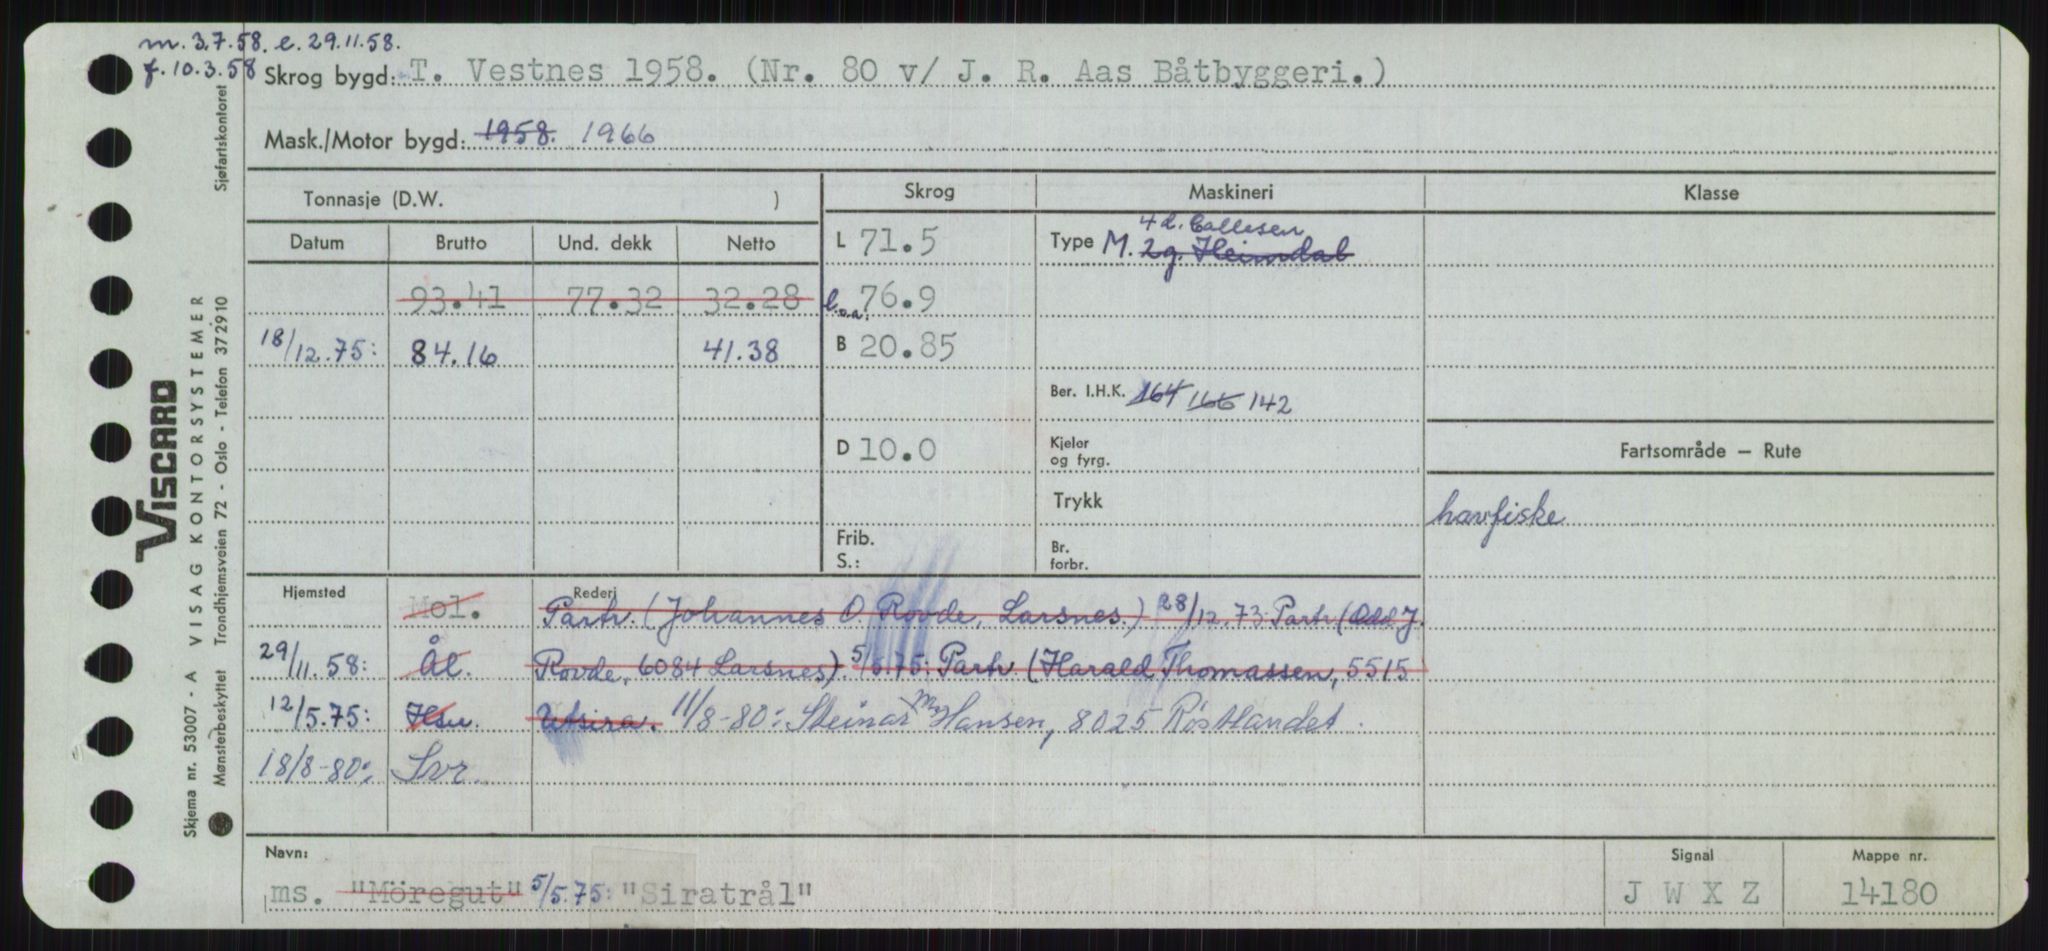 m. 3.7.58. e. 29.11.58.
f. 10.3.58 Skrog bygd: T. Vestnes 1958. (Nr. 80 v/ J. R. Aas Båtbyggeri.)
Mask./Motor bygd: 1958. 1966
Tonnasje (D.W. ) Skrog Maskineri Klasse
Datum Brutto Und. dekk Netto
L 71.5
Type M. 2g. Heimdal
4 d. Callesen
93.41 77.32 32.28 l.o.a. 76.9
18/12.75: 84.16 41.38 B 20.85
Ber. I.H.K. 164 166 142
D 10.0
Kjeler
og fyrg.
Fartsområde – Rute
Trykk
havfiske
Frib.
S.:
Br.
forbr.
Hjemsted Rederi
Mol. Partr. (Johannes O. Rovde, Larsnes.) 28/12.73: Partr. (Odd J.
29/11.58: Ål. Rovde, 6084 Larsnes). 5/5.75: Partr. (Harald Thomassen, 5515
12/5.75: Hsu. Utsira. 11/8-80: Steinar M. Hansen, 8025 Röstlandet.
18/8-80: Svr.
Navn: Signal Mappe nr.
ms. "Möregut" 5/5.75: "Siratrål" J W X Z 14180
VISCARD
VISAG KONTORSYSTEMER
Skjema nr. 53007 - A
Mønsterbeskyttet Trondhjemsveien 72 - Oslo - Telefon 372910 Sjøfartskontoret